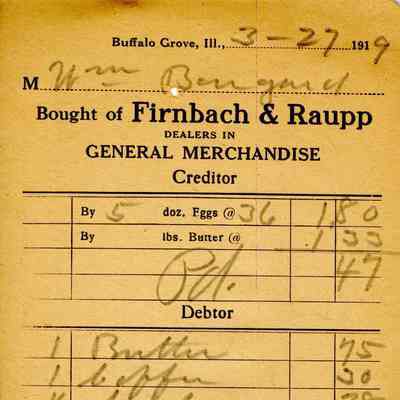 Buffalo Grove, Ill., 3-27 1919
M Wm Bengard
Bought of Firnbach & Raupp
DEALERS IN
GENERAL MERCHANDISE
Creditor
By 5 doz. Eggs @ 36 1.80
By lbs. Butter @ 1 33
Pd. 47
Debtor
1 Butter 75
1 Coffee 30